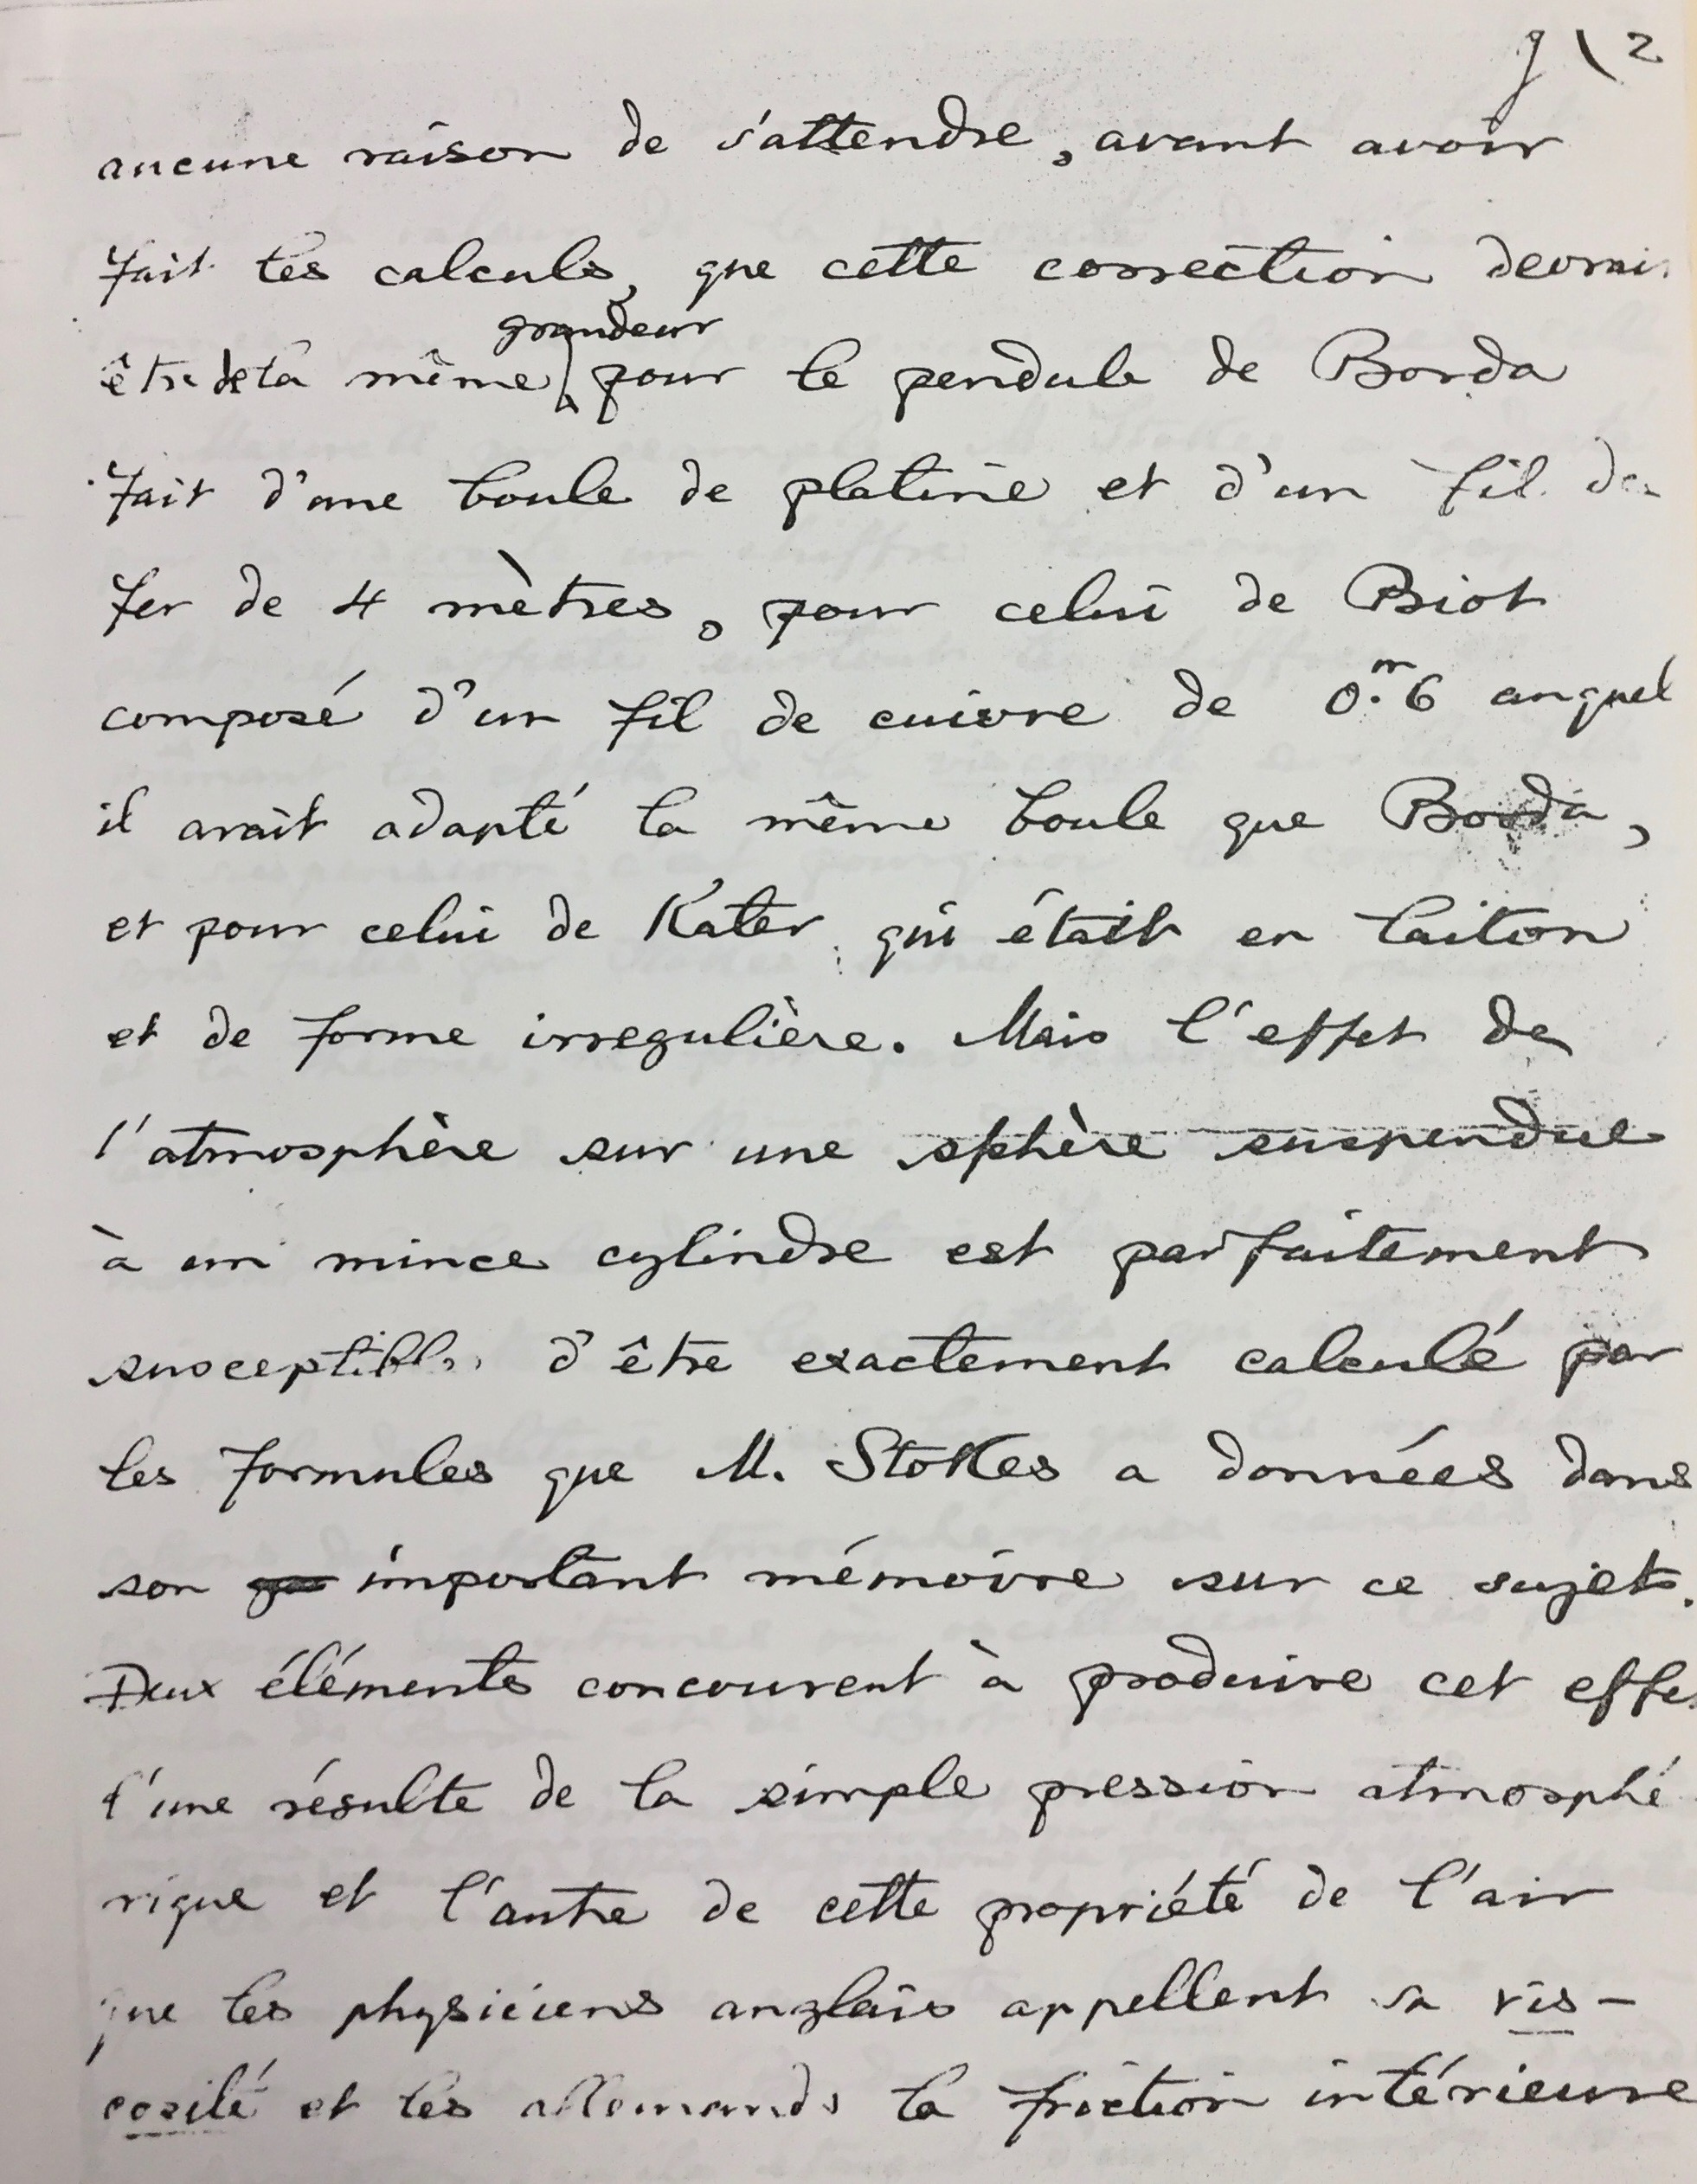 g \ 2
aucune raison de s'attendre, avant avoir
fait les calculs, que cette correction devrai
être de la même grandeur pour le pendule de Borda
fait d'une boule de platine et d'un fil de
fer de 4 mètres, pour celui de Biot
composé d'un fil de cuivre de 0.ᵐ6 auquel
il avait adapté la même boule que Borda,
et pour celui de Kater, qui était en laiton
et de forme irregulière. Mais l'effet de
l'atmosphère sur une sphère suspendue
à un mince cylindre est parfaitement
susceptible d'être exactement calculé par
les formules que M. Stokes a données dans
son important mémoire sur ce sujet.
Deux éléments concourent à produire cet effe
l'une résulte de la simple pression atmosphé
rique et l'autre de cette propriété de l'air
que les physiciens anglais appellent sa vis-
cosité et les allemands la friction intérieure